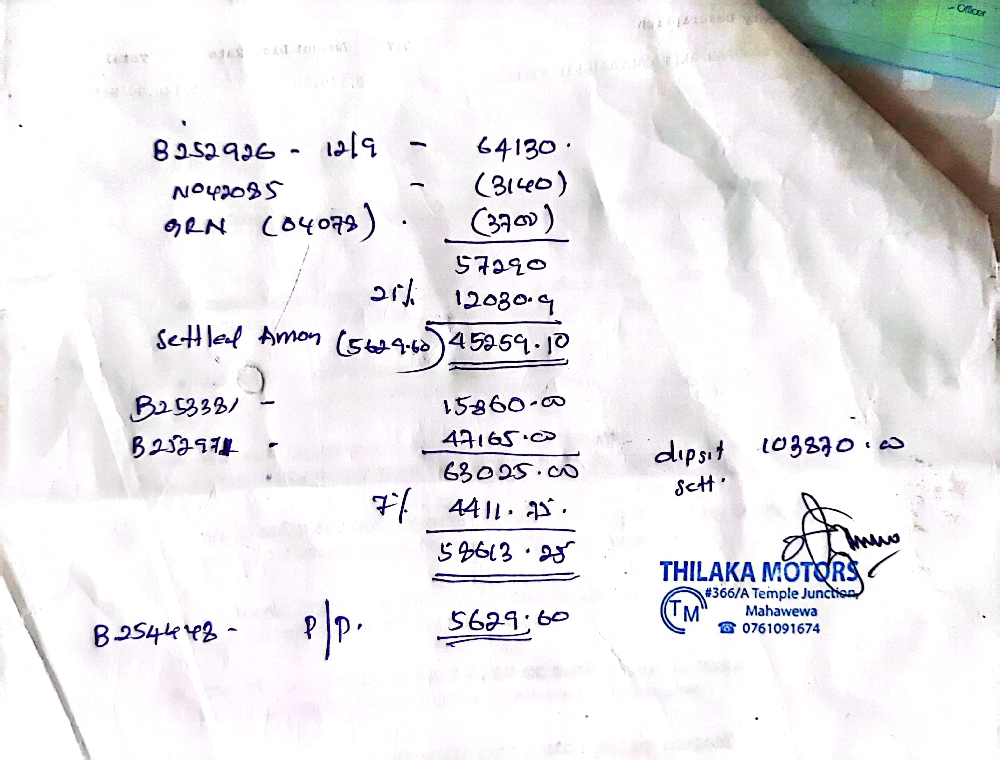 B252926 - 12/9 - 64130.
N042085 - (3140)
GRN (04078) . (3700)
57290
21% 12030.9
Settled Amon (5629.60) 45259.10
B253381 - 15860.00
B252971 - 47165.00
63025.00
dipsit 103870.00
sett.
7% 4411.75.
58613.25
THILAKA MOTORS
#366/A Temple Junction,
TM
Mahawewa
☎ 0761091674
B254448 - P/P. 5629.60
- Officer